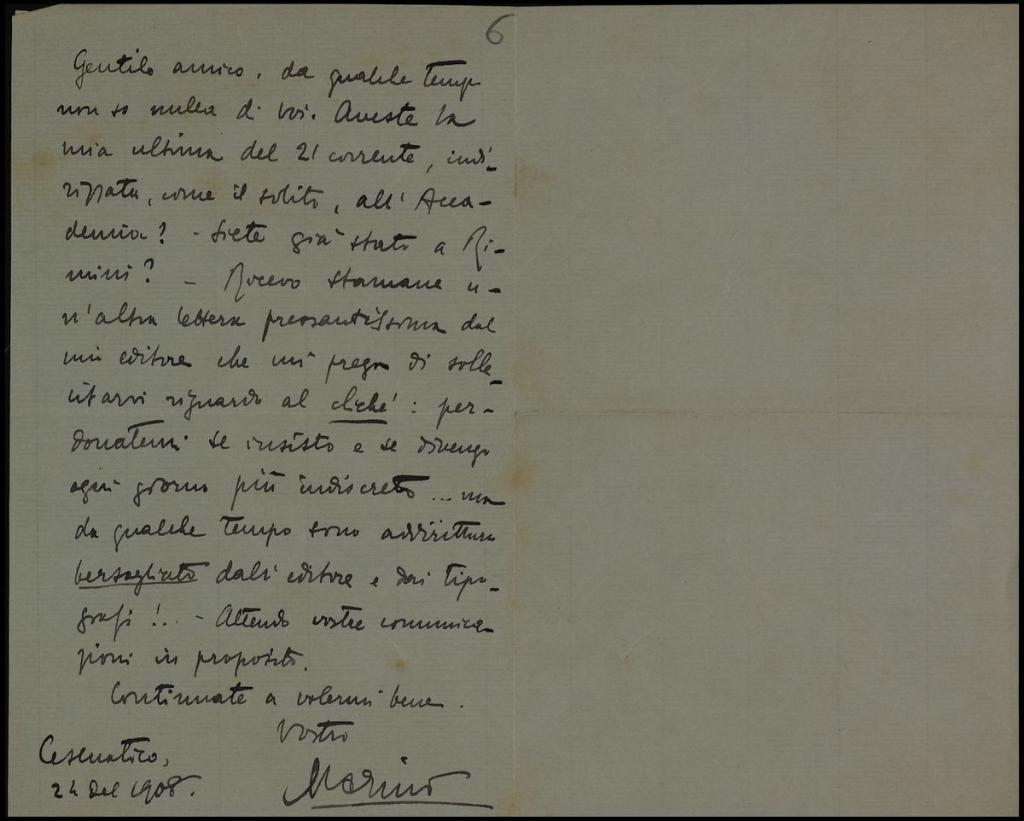 6
Gentile amico, da qualche tempo
non so nulla di voi. Aveste la
mia ultima del 21 corrente, indi-
rizzata, come il solito, all'Acca-
demia? - Siete già stato a Ri-
mini? - Ricevo stamane u-
n'altra lettera pressantissima dal
mio editore che mi prega di solle-
citarvi riguardo al cliché: per-
donatemi se insisto e se divengo
ogni giorno più indiscreto... ma
da qualche tempo sono addirittura
bersagliato dall'editore e dai tipo-
grafi!.. - Attendo vostre comunica-
zioni in proposito.
Continuate a volermi bene.
Vostro
Cesenatico,
del 1908.
Marino